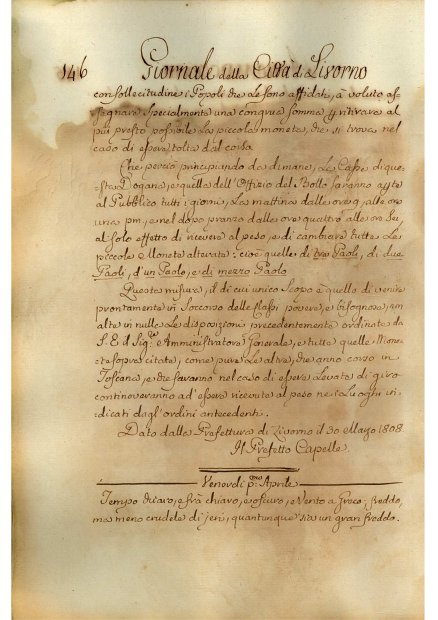 146 Giornale della Città di Livorno
con sollecitudine i Popoli che Le sono affidati, à voluto as-
segnare specialmente una congrua somma p ritirare al
più presto possibile La piccola moneta, che si trova nel
caso di essere tolta dal corso.
Che perciò principiando da dimane, Le Casse di que-
sta Dogana, e quella dell'Offizio del Bollo saranno apte
al Pubblico tutti i giorni, La mattina dalle ore 9, alle ore
una pm, e nel dopo pranzo dalle ore quattro alle ore sei,
al solo effetto di ricevere al peso, e di cambiare tutte Le
piccole Monete alterate: cioè quelle di tre Paoli, di due
Paoli, d'un Paolo, e di mezzo Paolo
Questa misura, il di cui unico scopo è quello di venire
prontamente in soccorso delle classi povere, e bisognose, non
altera in nulla Le disposizioni precedentemente ordinate da
S. E. il Sigre Amministratore Generale, e tutte quelle Mone-
te sopra citate, come pure Le altre, che anno corso in
Toscana, e che saranno nel caso di essere Levate di giro
continoveranno ad essere ricevute al peso nei Luoghi in-
dicati dagl'ordini antecedenti.
Dato dalla Prefettura di Livorno il 30 Marzo 1808
Il Prefetto Capelle
Venerdì pmo Aprile
Tempo chiaro, e frà chiaro, e oscuro, e Vento a Greco; freddo,
ma meno crudele di jeri, quantunque sia un gran freddo.